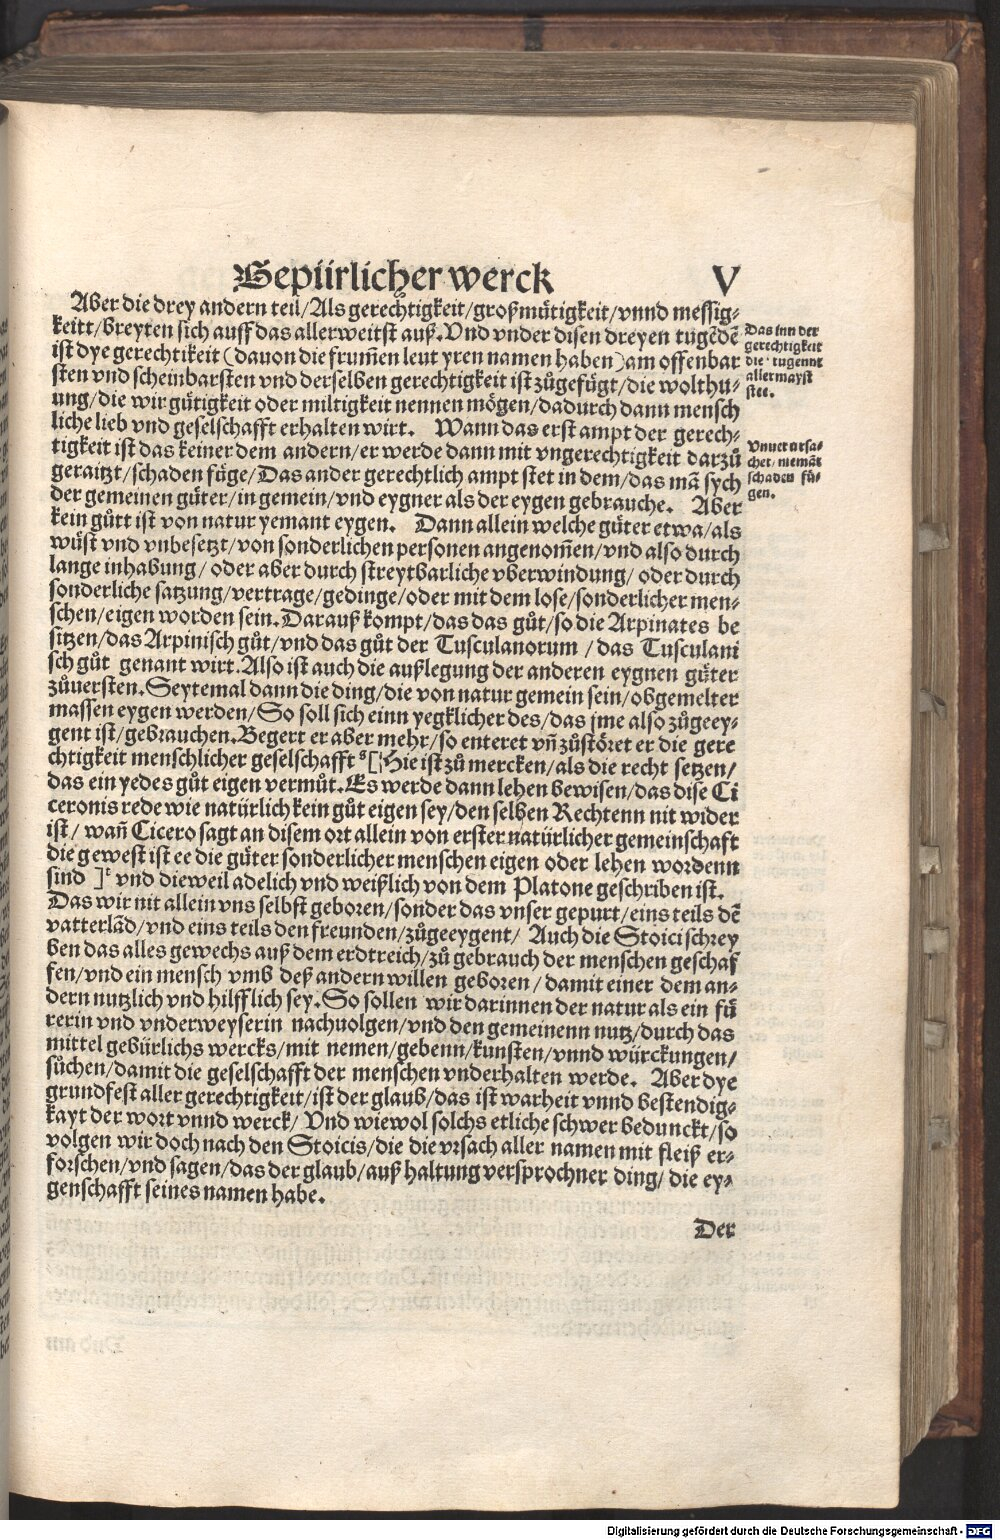 Gepürlicher werck V
Aber die drey andern teil/Als gerechtigkeit/großmütigkeit/vnnd messig⸗
keitt/breyten sich auff das allerweitst auß. Vnd vnder disen dreyen tugēdē
ist dye gerechtikeit (dauon die frum̄en leut yren namen haben) am offenbar
sten vnd scheinbarsten vnd derselben gerechtigkeit ist zůgefügt/die wolthu⸗
ung/die wir gütigkeit oder miltigkeit nennen mögen/dadurch dann mensch
liche lieb vnd geselschafft erhalten wirt. Wann das erst ampt der gerech⸗
tigkeit ist das keiner dem andern/er werde dann mit vngerechtigkeit darzů
geraitzt/schaden füge/Das ander gerechtlich ampt stet in dem/das mā sych
der gemeinen güter/in gemein/vnd eygner als der eygen gebrauche. Aber
kein gůtt ist von natur yemant eygen. Dann allein welche güter etwa/als
wüst vnd vnbesetzt/von sonderlichen personen angenom̄en/vnd also durch
lange inhabung/ oder aber durch streytbarliche vberwindung/ oder durch
sonderliche satzung/vertrage/gedinge/oder mit dem lose/sonderlicher men⸗
schen/eigen worden sein. Darauß kompt/das das gůt/so die Arpinates be
sitzen/das Arpinisch gůt/vnd das gůt der Tusculanorum/das Tusculani
sch gůt genant wirt. Also ist auch die außlegung der anderen eygnen güter
zůuersten. Seytemal dann die ding/die von natur gemein sein/obgemelter
massen eygen werden/So soll sich einn yegklicher des/das jme also zůgeey⸗
gent ist/gebrauchen. Begert er aber mehr/so enteret vn̄ zůstöret er die gere
chtigkeit menschlicher geselschafft [Hie ist zů mercken/als die recht setzen/
das ein yedes gůt eigen vermůt. Es werde dann lehen bewisen/das dise Ci
ceronis rede wie natürlich kein gůt eigen sey/den selben Rechtenn nit wider
ist/ wan̄ Cicero sagt an disem ort allein von erster natürlicher gemeinschaft
die gewest ist ee die güter sonderlicher menschen eigen oder lehen wordenn
sind ] vnd dieweil adelich vnd weißlich von dem Platone geschriben ist.
Das wir nit allein vns selbst geboren/sonder das vnser gepurt/eins teils dē
vatterlād/vnd eins teils den freunden/zůgeeygent/ Auch die Stoici schrey
ben das alles gewechs auß dem erdtreich/zů gebrauch der menschen geschaf
fen/vnd ein mensch vmb deß andern willen geboren/damit einer dem an⸗
dern nutzlich vnd hilfflich sey. So sollen wir darinnen der natur als ein fü
rerin vnd vnderweyserin nachuolgen/vnd den gemeinenn nutz/durch das
mittel gebürlichs wercks/mit nemen/gebenn/kunsten/vnnd würckungen/
sůchen/damit die geselschafft der menschen vnderhalten werde. Aber dye
grundfest aller gerechtigkeit/ist der glaub/das ist warheit vnnd bestendig⸗
kayt der wort vnnd werck/ Vnd wiewol solchs etliche schwer bedunckt/so
volgen wir doch nach den Stoicis/die die vrsach aller namen mit fleiß er⸗
forschen/vnd sagen/das der glaub/auß haltung versprochner ding/die ey⸗
genschafft seines namen habe.
Der
Das inn der
gerechtigkeit
die tugennt
allermayst
stee.
Vnuerursa⸗
chet niemāt
schaden fü⸗
gen.
Digitalisierung gefördert durch die Deutsche Forschungsgemeinschaft - DFG